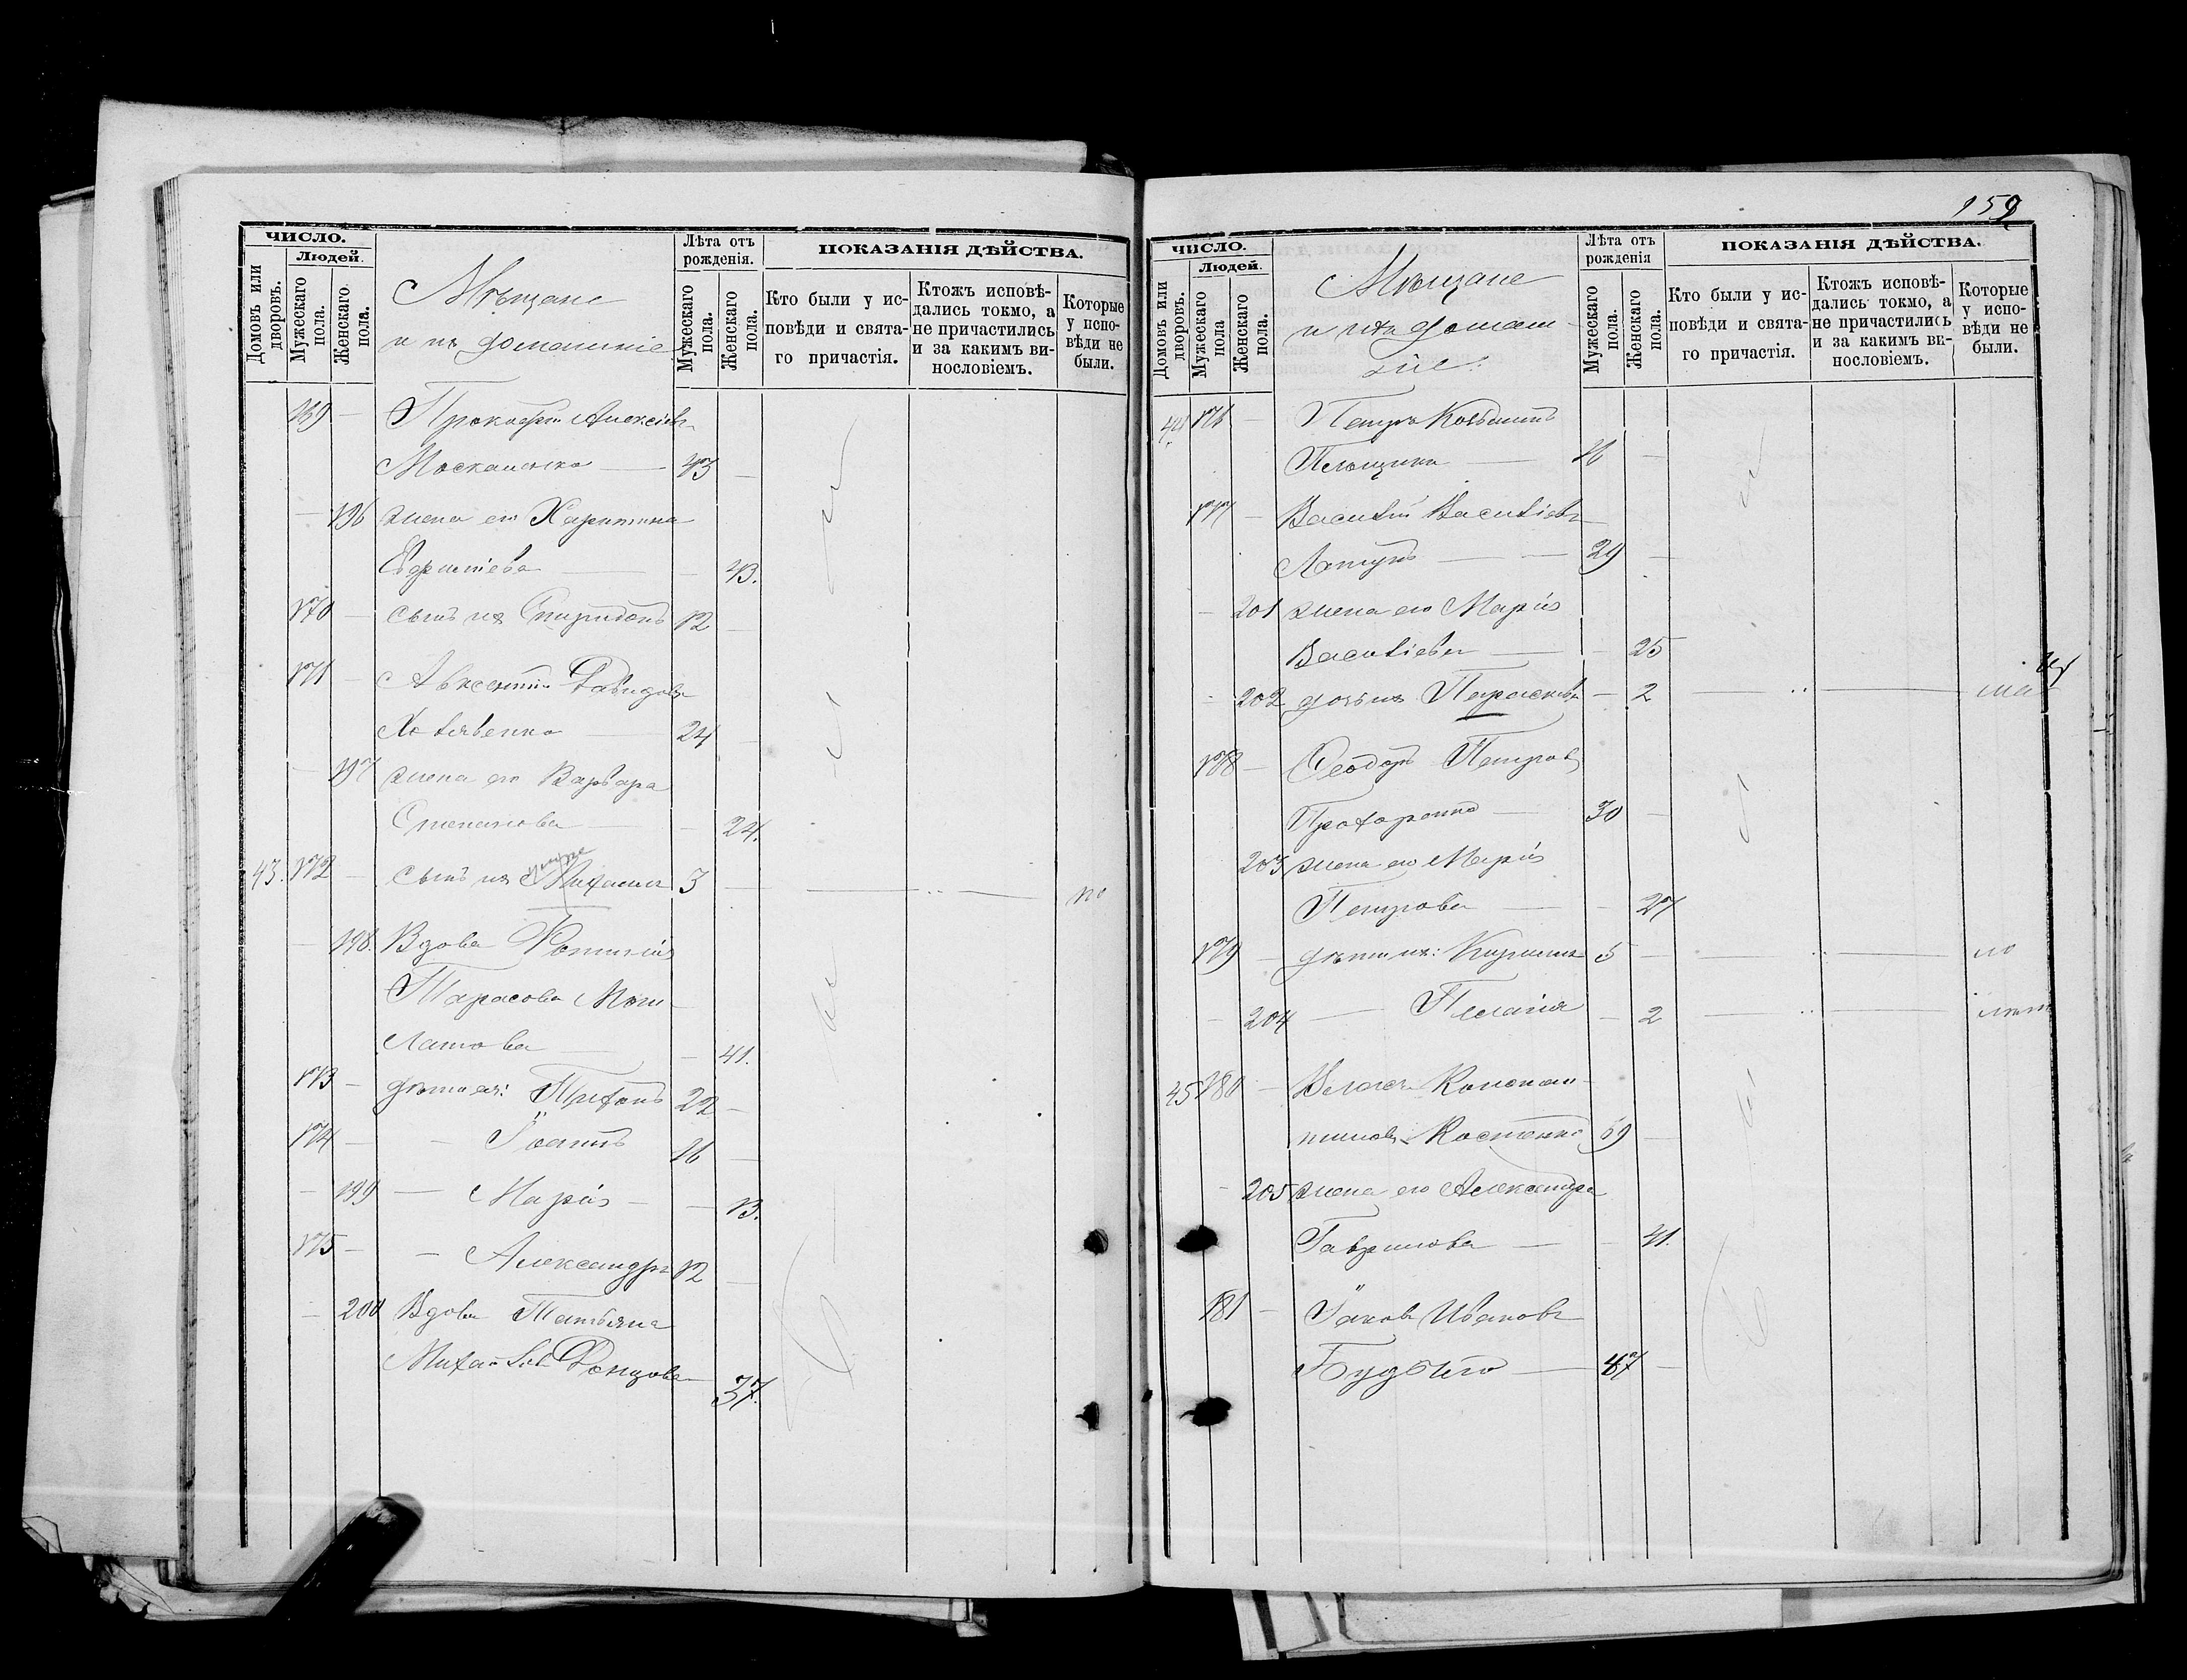 ЧИСЛО.
Людей.
Домовъ или дворовъ.
Мужескаго пола.
Женскаго пола.
Мѣщане
и ихъ домашніе
Лѣта отъ рожденія.
Мужескаго пола.
Женскаго пола.
ПОКАЗАНІЯ ДѢЙСТВА.
Кто были у ис-
повѣди и свята-
го причастія.
Ктожъ исповѣ-
дались токмо, а
не причастились
и за какимъ ви-
нословіемъ.
Которые
у испо-
вѣди не
были.
169 — Прокофій Алексіевъ
— 43 —
— 196 жена его Харитина
— — 43.
170 — сынъ ихъ Спиридонъ 12 —
171 — Авксентій Давидовъ
Хотявенко — 24 —
— 197 жена его Варвара
Степанова — — 24.
43. 172 — сынъ ихъ Михаилъ 3 —
— 198. Вдова
Тарасова
— — 41.
173 — дѣти ея: Трифонъ 22 —
174 — — Іоаннъ 16 —
— 199 — Марія — — 13.
175 — — Александръ 12 —
— 200 Вдова Татьяна
37.
159
ЧИСЛО.
Людей.
Домовъ или дворовъ.
Мужескаго пола
Женскаго пола.
Мѣщане
и ихъ домаш-
ніе.
Лѣта отъ рожденія
Мужескаго пола.
Женскаго пола.
ПОКАЗАНІЯ ДѢЙСТВА.
Кто были у ис-
повѣди и свята-
го причастія.
Ктожъ исповѣ-
дались токмо, а
не причастились
и за какимъ ви-
нословіемъ.
Которые
у испо-
вѣди не
были.
44. 176 — Петръ
— 16 —
177 — Василій Василіевъ
— 29 —
— 201 жена его Марія
Василіева — — 25
— 202 дочь ихъ Параскева — 2
178 — Ѳеодоръ Петровъ
Прохоренко — 30 —
203 жена его Марія
Петрова — — 27
179 — дѣти ихъ: Кириллъ 5 —
— 204 — Пелагія — 2
45 180 — Власъ Констан-
тиновъ Костенко 69 —
— 205 жена его Александра
Гавриилова — — 41.
181 — Іаковъ Ивановъ
— 47 —